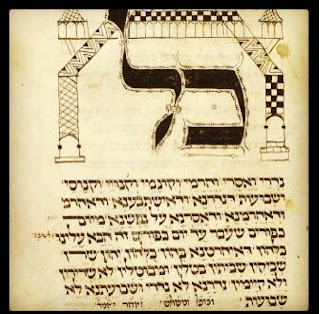 כל
נדרי ואסרי וחרמי וקונמי וקנוסי
ושבועות דנדרנא ודאשתבענא ודאחרמ
ודאחרמנא ודאסרנא על נפשנא מיום
כפורים שעבר עד יום כפורים זה הבא עלינו
כלהון דאיחרטנא בהון כלהון יהון שר
שביקין שביתין בטלין ומבוטלין לא שרירין
ולא קיימין נדרנא לא נדרי ושבועתנא לא
שבועות